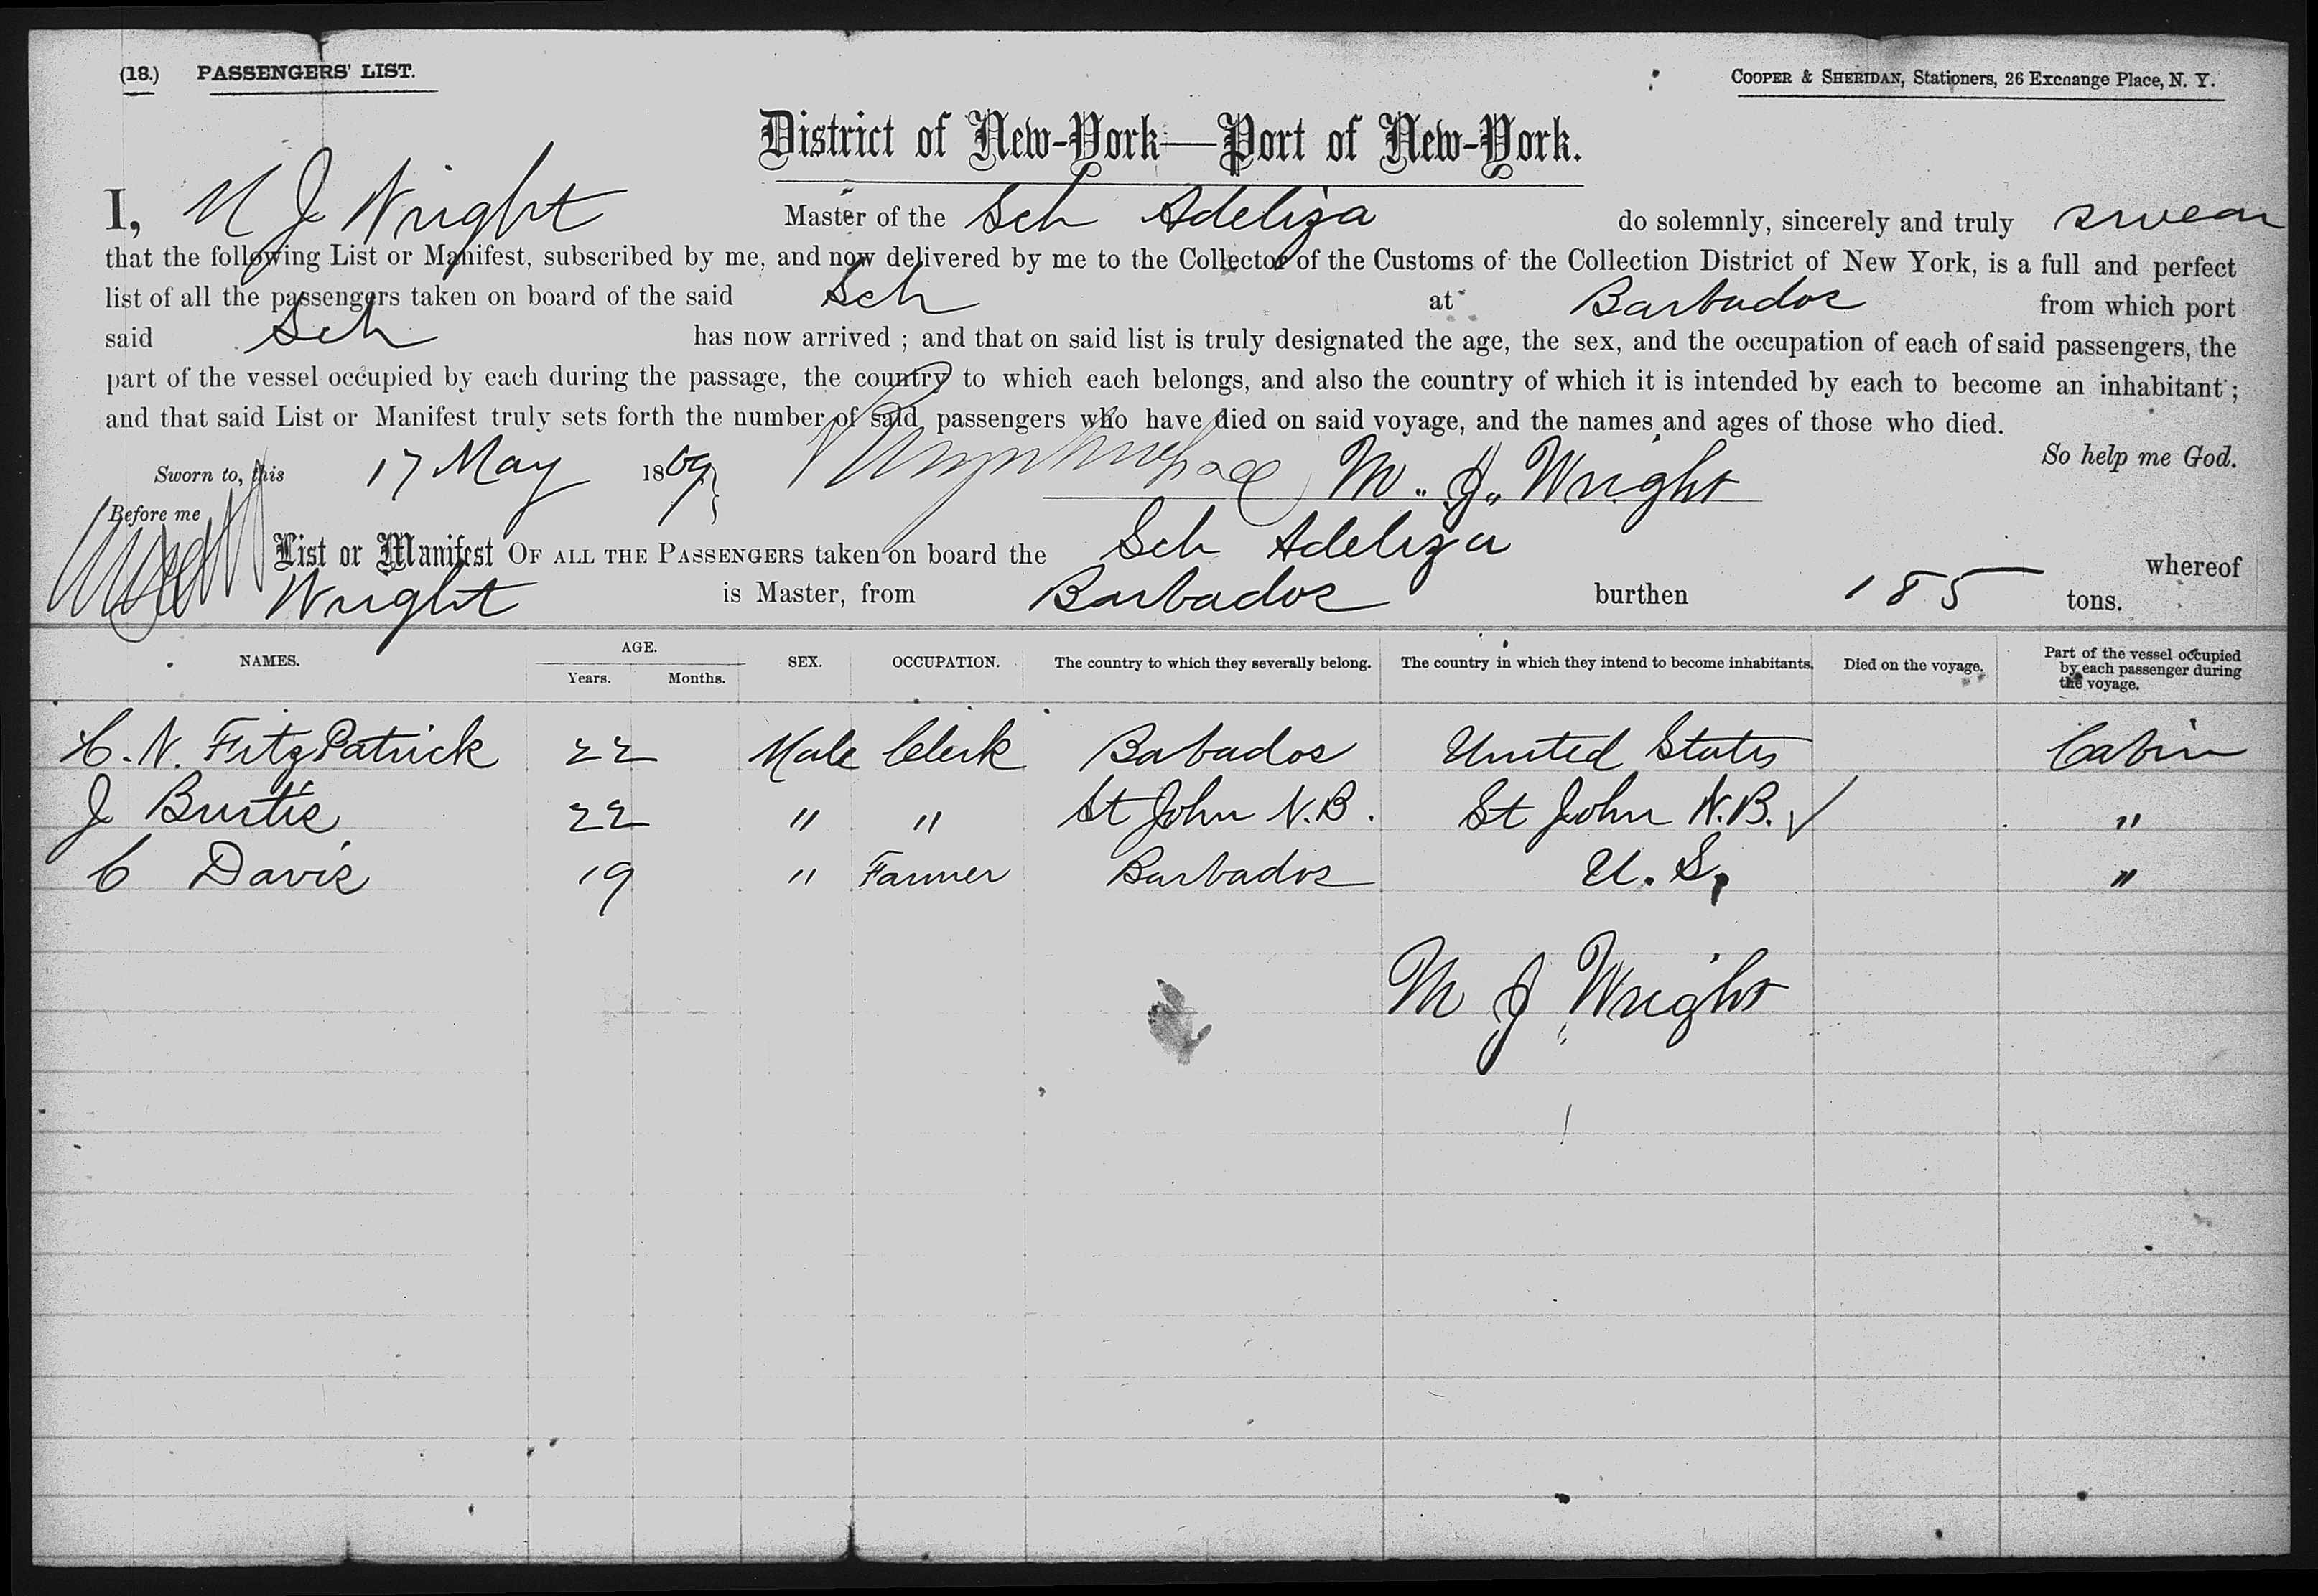 (18.) PASSENGERS' LIST. COOPER & SHERIDAN, Stationers, 26 Excnange Place, N. Y.
District of New-York—Port of New-York.
I, M J Wright Master of the Sch Adeliza do solemnly, sincerely and truly swear
that the following List or Manifest, subscribed by me, and now delivered by me to the Collector of the Customs of the Collection District of New York, is a full and perfect
list of all the passengers taken on board of the said Sch at Barbados from which port
said Sch has now arrived ; and that on said list is truly designated the age, the sex, and the occupation of each of said passengers, the
part of the vessel occupied by each during the passage, the country to which each belongs, and also the country of which it is intended by each to become an inhabitant ;
and that said List or Manifest truly sets forth the number of said passengers who have died on said voyage, and the names and ages of those who died.
So help me God.
Sworn to, this 17 May 1869 M. J. Wright
Before me
List or Manifest OF ALL THE PASSENGERS taken on board the Sch Adeliza whereof
Wright is Master, from Barbados burthen 185 tons.
NAMES. AGE. Years. Months. SEX. OCCUPATION. The country to which they severally belong. The country in which they intend to become inhabitants. Died on the voyage. Part of the vessel occupied by each passenger during the voyage.
C. N. FitzPatrick 22 Male Clerk Babados United States Cabin
J Burtis 22 " " St John N.B. St John N.B. ✓ "
C Davis 19 " Farmer Barbados U. S. "
M J Wright